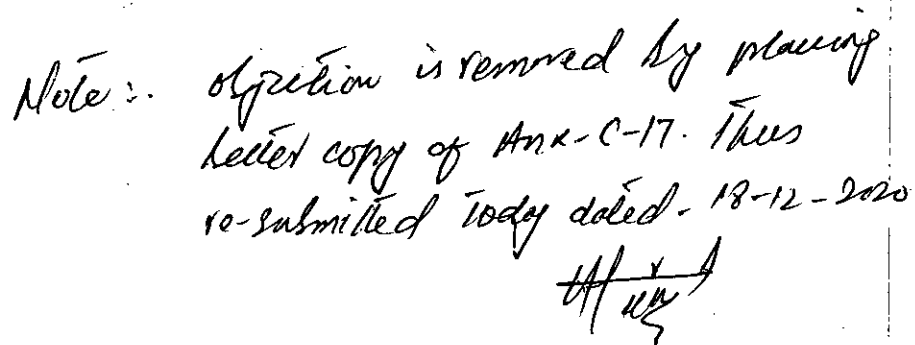 Note:. objection is removed by placing
better copy of Anx-C-17. Thus
re-submitted today dated - 18-12-2020